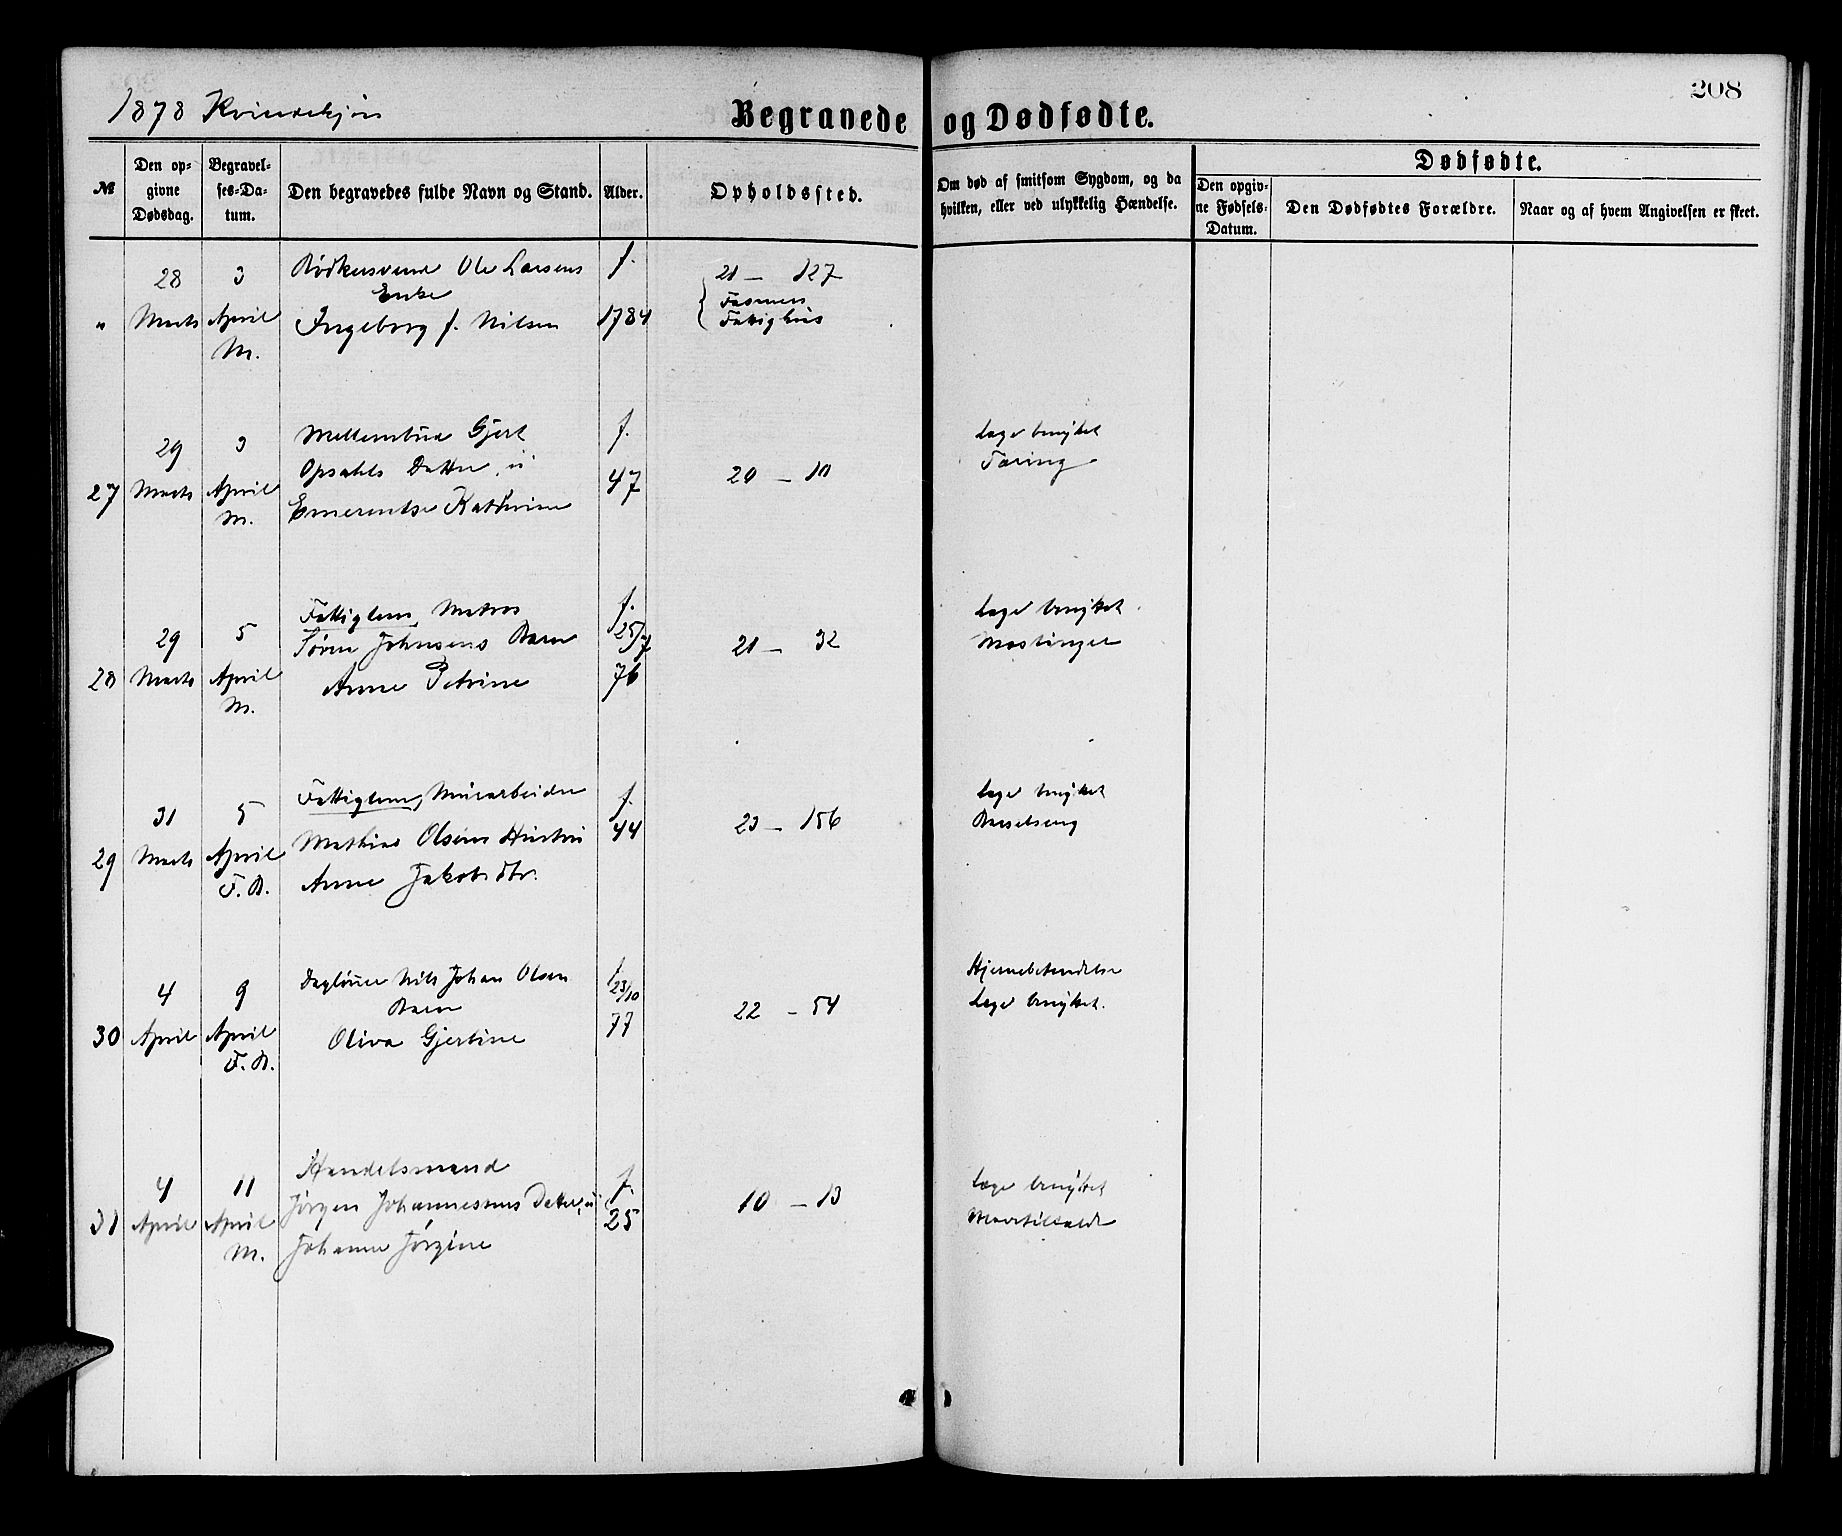 208
1878 Kvindekjøn
Begravede og Dødfødte.
№
Den opgivne Dødsdag.
Begravelses-Datum.
Den begravedes fulde Navn og Stand.
Alder.
Opholdssted.
Om død af smitsom Sygdom, og da hvilken, eller ved ulykkelig Hændelse.
Dødfødte.
Den opgivne Fødsels-Datum.
Den Dødfødtes Forældre.
Naar og af hvem Angivelsen er skeet.
"
28 Marts
3 April M.
Bødkersvend Ole Larsens
Enke
Ingeborg f. Nilsen
f. 1784
21 — 127
Fasmers
Fattighus
27
29 Marts
3 April M.
Mellembud Gjert
Opsahls Datter, u
Emerentse Kathrine
f. 47
20 — 10
Læge benyttet
Tæring
28
29 Marts
5 April M.
Fattiglem, Matros
Søren Johnsens Barn
Anne Petrine
f. 25/7 76
21 — 32
Læge benyttet.
Mæslinger
29
31 Marts
5 April F. B.
Fattiglem, Murarbeider
Mathias Olsens Hustru
Anne Jakobsdtr.
f. 44
23 — 156
Læge benyttet
Barselseng
30
4 April
9 April F. B.
Dagleier Nils Johan Olsen
Barn
Oliva Gjertine
f 23/10 77
22 — 54
Hjernebetændelse
Læge benyttet.
31
4 April
11 April M.
Handelsmand
Jørgen Johannesens Datter, u
Johanne Jørgine
f. 25
10 — 13
Læge benyttet